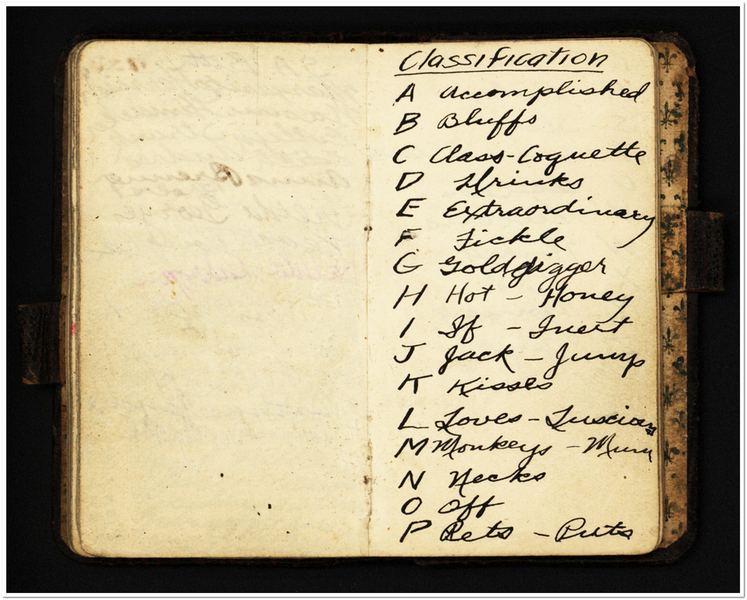 Classification
A Accomplished
B Bluffs
C Class-Coquette
D Drinks
E Extraordinary
F Fickle
G Golddigger
H Hot - Honey
I If - Inert
J Jack - Jump
K Kisses
L Loves - Luscious
M Monkeys - Mum
N Necks
O Off
P Pets - Puts